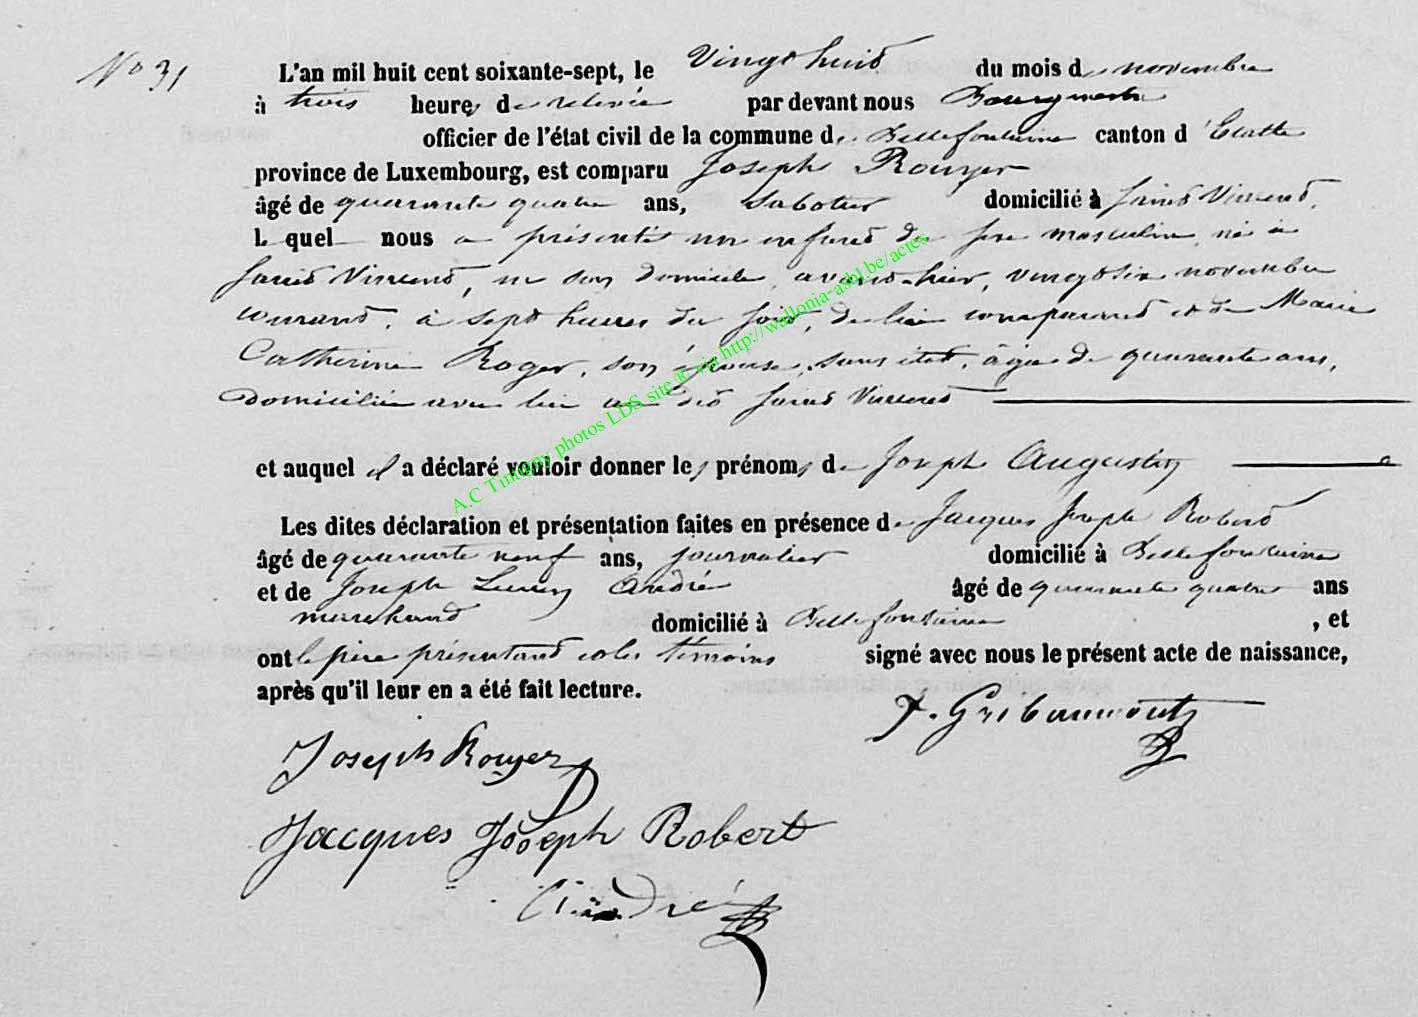 No 31
L'an mil huit cent soixante-sept, le Vingt huit du mois de novembre
à trois heures de relevée par devant nous Bourgmestre
officier de l'état civil de la commune de Bellefontaine canton d'Etalle
province de Luxembourg, est comparu Joseph Rouyer
âgé de quarante quatre ans, sabotier domicilié à Saint Vincent,
Lequel nous a présenté un enfant de sexe masculin, né à
Saint Vincent, en son domicile, avant-hier, vingt six novembre
courant, à sept heures du soir, de lui comparant et de Marie
Catherine Roger, son épouse, sans état, âgée de quarante ans,
domiciliée avec lui au dit Saint Vincent
et auquel il a déclaré vouloir donner les prénoms de Joseph Augustin
Les dites déclaration et présentation faites en présence de Jacques Joseph Robert
âgé de quarante neuf ans, journalier domicilié à Bellefontaine
et de Joseph André âgé de quarante quatre ans
marchand domicilié à Bellefontaine, et
ont le père présentant et les témoins signé avec nous le présent acte de naissance,
après qu'il leur en a été fait lecture.
Gribaumont
Joseph Rouyer
Jacques Joseph Robert
André
A.C Tintigny photos LDS site @ via http://wallonia-asbl.be/actes